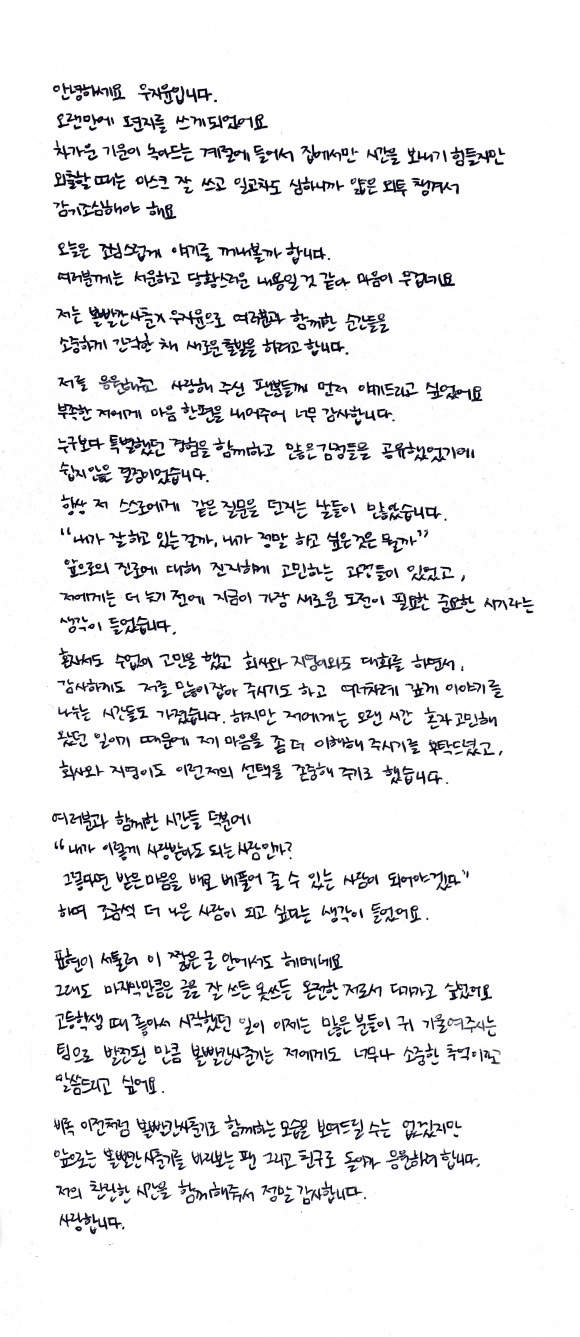 안녕하세요 우지윤입니다.
오랜만에 편지를 쓰게되었어요
차가운 기운이 녹아드는 계절에 들어서 집에서만 시간을 보내기 힘들지만
외출할 때는 마스크 잘 쓰고 일교차도 심하니까 얇은 외투 챙겨서
감기조심해야 해요
오늘은 조심스럽게 얘기를 꺼내볼까 합니다.
여러분께는 서운하고 당황스러운 내용일 것 같아 마음이 무겁네요
저는 볼빨간사춘기 우지윤으로 여러분과 함께한 순간들을
소중하게 간직한 채 새로운 출발을 하려고 합니다.
저를 응원해주고 사랑해 주신 팬분들께 먼저 얘기드리고 싶었어요
부족한 저에게 마음 한편을 내어주어 너무 감사합니다.
누구보다 특별했던 경험을 함께하고 많은 감정들을 공유했었기에
쉽지 않은 결정이었습니다.
항상 저 스스로에게 같은 질문을 던지는 날들이 많았습니다.
“내가 잘 하고 있는걸까, 내가 정말 하고 싶은것은 뭘까”
앞으로의 진로에 대해 진지하게 고민하는 과정들이 있었고,
저에게는 더 늦기 전에 지금이 가장 새로운 도전이 필요한 중요한 시기라는
생각이 들었습니다.
혼자서도 수없이 고민을 했고 회사와 지영이와도 대화를 하면서,
감사하게도 저를 많이 잡아 주시기도 하고 여러차례 깊게 이야기를
나누는 시간들도 가졌습니다. 하지만 저에게는 오랜 시간 혼자 고민해
왔던 일이기 때문에 제 마음을 좀 더 이해해 주시기를 부탁드렸고,
회사와 지영이도 이런 저의 선택을 존중해 주기로 했습니다.
여러분과 함께한 시간들 덕분에
“내가 이렇게 사랑받아도 되는 사람인가?
그렇다면 받은 마음을 배로 베풀어 줄 수 있는 사람이 되어야겠다”
하며 조금씩 더 나은 사람이 되고 싶다는 생각이 들었어요.
표현이 서툴러 이 짧은 글 안에서도 헤매네요
그래도 마지막만큼은 글을 잘 쓰든 못쓰든 온전한 저로서 다가가고 싶었어요
고등학생 때 좋아서 시작했던 일이 이제는 많은 분들이 귀 기울여주시는
팀으로 발전된 만큼 볼빨간사춘기는 저에게도 너무나 소중한 추억이라고
말씀드리고 싶어요.
비록 이전처럼 볼빨간사춘기로 함께하는 모습을 보여드릴 수는 없겠지만
앞으로는 볼빨간사춘기를 바라보는 팬 그리고 친구로 돌아가 응원하려 합니다.
저의 찬란한 시간을 함께해줘서 정말 감사합니다.
사랑합니다.